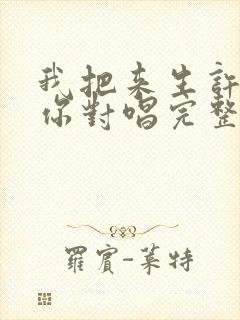 我把来生許
你對唱完整
羅賓-萊特